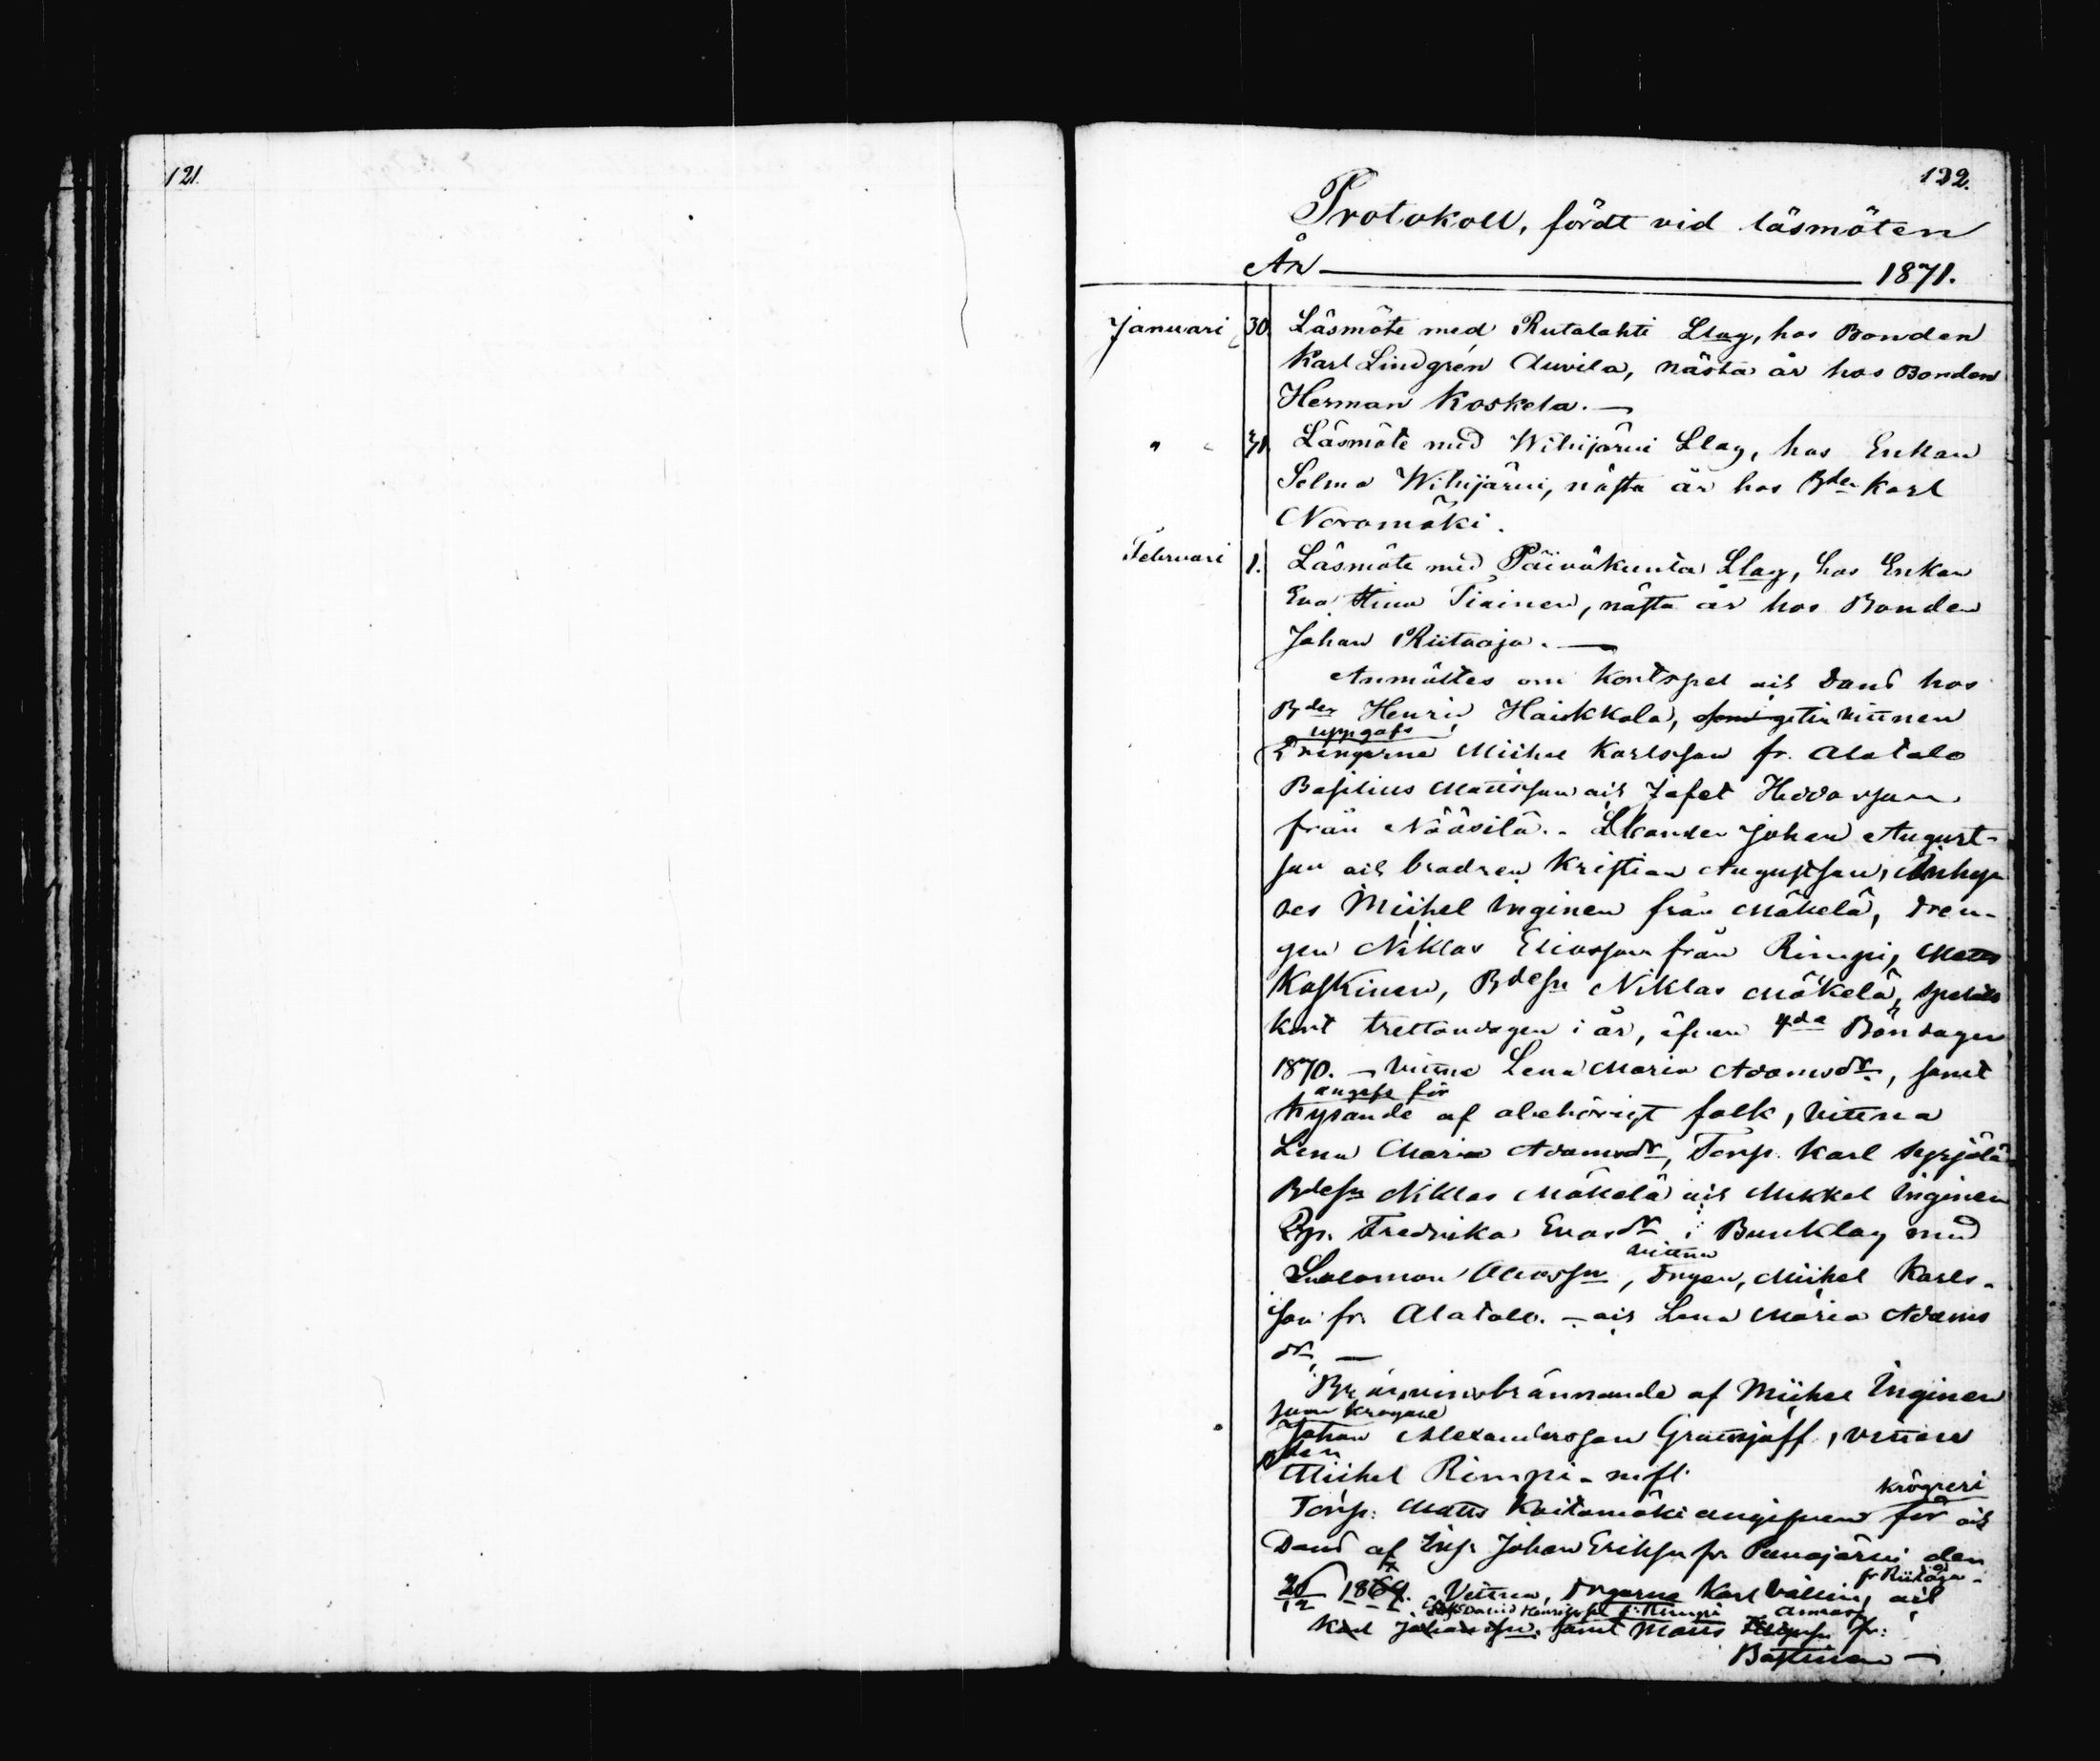 121.
122.
Protokoll, fördt vid läsmöten
År 1871.
Januari 30. Läsmöte med Rutalahti Llag, hos Bonden
Karl Lindgrén Auvila, nästa år hos Bonden
Herman Koskela. —
" " 31. Läsmöte med Wihijärvi Llag, hos Enkan
Selma Wihijärvi, nästa år hos Bden Karl
Noromäki.
Februari 1. Läsmöte med Päiväkunta Llag, hos Enkan
Eva Stina Tiainen, nästa år hos Bonden
Johan Riitaoja. —
Anmältes om Kortspel och Dans hos
Bden Henric Haikkola, vittnen
uppgafs
Drängarne Michel Karlsson fr. Alatalo
Basilius Mattsson och Jafet
från Nääsilä. - Johan August-
son och brodren Kristian Augustson, Inhys
tes Michel Inginen från Mäkelä, Drän-
gen Niklas Eliasson från Rimpi, Matts
Koskinen, Bdesn Niklas Mäkelä, spelade
kort trettondagen i år, äfven 4da Böndagen
1870. — vittne Lena Maria Adamsdr, samt
angafs för
hysande af obehörigt folk, vittna
Lena Maria Adamsdr, Torp. Karl Syrjälä
Bdesn Niklas Mäkelä och Mikkel Inginen
Fredrika Evasdr i Bunklag med
vittna
Salomon, Drgen, Michel Karls-
son fr. Alatalo. — och Lena Maria Adams
dr, —
Br änvinsbrännande af Michel Inginen
samt krögare
Johan Alexandersson, vittnen
Bden
Michel Rimpi
krögeri
Torp: Matts Koitamäki angifven för och
Dans af Johan Eriksn fr. den
fr Riitaoja
12 1869. Vittna, Drgarne Karl Vallin, och
David Henriksson fr. Rimpi
Karl Johansson, samt Matts fr: